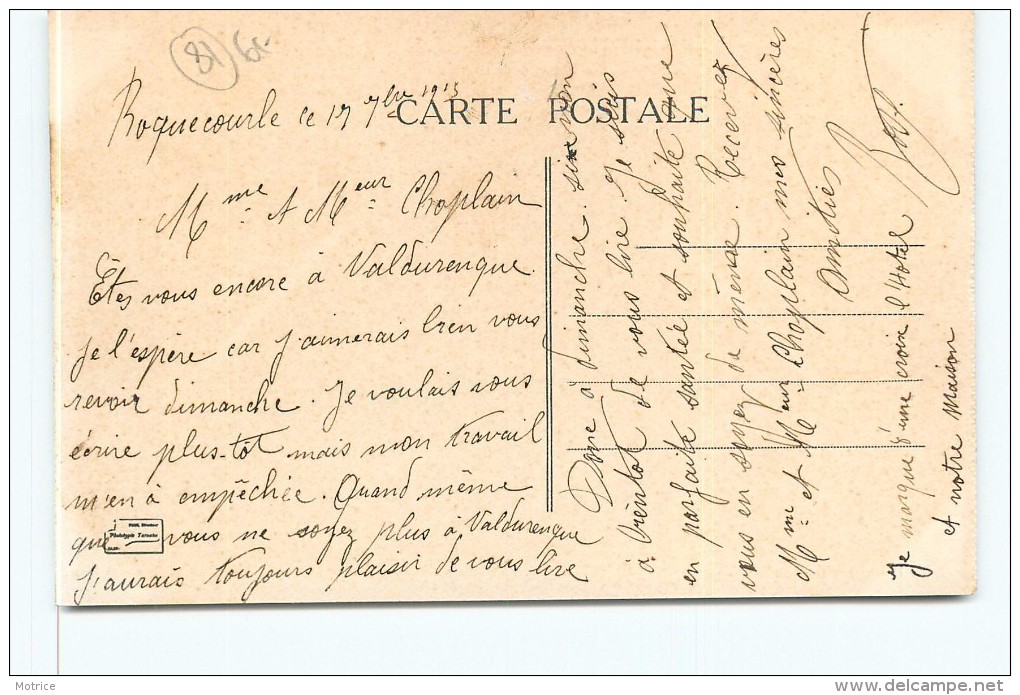 81
CARTE POSTALE
Roquecourbe ce 17 7bre 1913
Mme & Meur Choplain
Êtes vous encore à Valdurenque
je l'espère car j'aimerais bien vous
revoir dimanche. Je voulais vous
écrire plus-tôt mais mon travail
m'en à empêchée. Quand même
que vous ne soyez plus à Valdurenque
j'aurais toujours plaisir de vous lire
Donc à dimanche. sinon
à bientôt de vous lire. Je suis
en parfaite santée et souhaite que
vous en soyez de même. Recevez
Mme et Meur Choplain mes sincères
amitiés
Je marque d'une croix l'Hotel
et notre maison
Phototypie Tarnaise
Motrice
http://www.delcampe.net